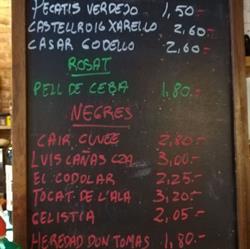 PECATIS VERDEJO 1,50.-
CASTELLROIG XARELLO 2,60.-
CASAR GODELLO 2,60.-
ROSAT
PELL DE CEBA 1,80.-
NEGRES
CAIR CUVEE 2,80.-
LUIS CAÑAS CZA 3,00.-
EL CODOLAR 2,25.-
TOCAT DE L'ALA 3,20.-
CELISTIA 2,05.-
HEREDAD DON TOMAS 1,80.-